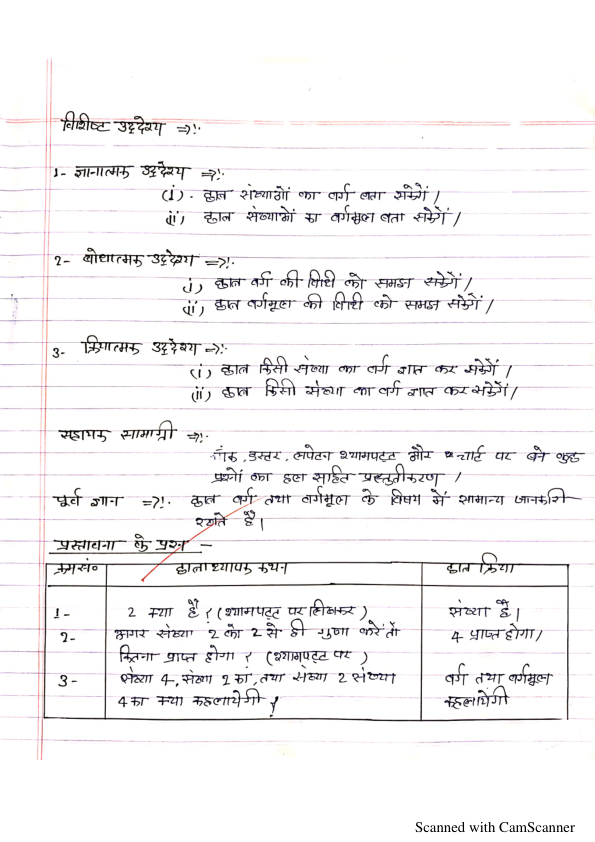 विशिष्ट उद्देश्य ⇒!·
1- ज्ञानात्मक उद्देश्य ⇒!·
(i). छात्र संख्याओं का वर्ग बता सकेगें /
(ii) छात्र संख्याओं का वर्गमूल बता सकेगें /
2- बोधात्मक उद्देश्य ⇒!·
(i) छात्र वर्ग की विधि को समझ सकेगें /
(ii) छात्र वर्गमूल की विधि को समझ सकेगें /
3- क्रियात्मक उद्देश्य ⇒!·
(i) छात्र किसी संख्या का वर्ग ज्ञात कर सकेगें /
(ii) छात्र किसी संख्या का वर्ग ज्ञात कर सकेगें /
सहायक सामाग्री ⇒!·
चॉक, डस्टर, लपेटन श्यामपट्ट और चार्ट पर बने कुछ
प्रश्नों का हल साहित प्रस्तुतीकरण /
पूर्व ज्ञान ⇒!· छात्र वर्ग तथा वर्गमूल के विषय में सामान्य जानकारी
रखते हैं।
प्रस्तावना के प्रश्न -
क्रमसं० छात्राध्यापक कथन छात्र क्रिया
1- 2 क्या है ? (श्यामपट्ट पर लिखकर) संख्या है।
2- अगर संख्या 2 को 2 से ही गुणा करें तो 4 प्राप्त होगा /
कितना प्राप्त होगा ? (श्यामपट्ट पर)
3- संख्या 4, संख्या 2 का, तथा संख्या 2 संख्या वर्ग तथा वर्गमूल
4 का क्या कहलायेगी ? कहलायेंगी
Scanned with CamScanner